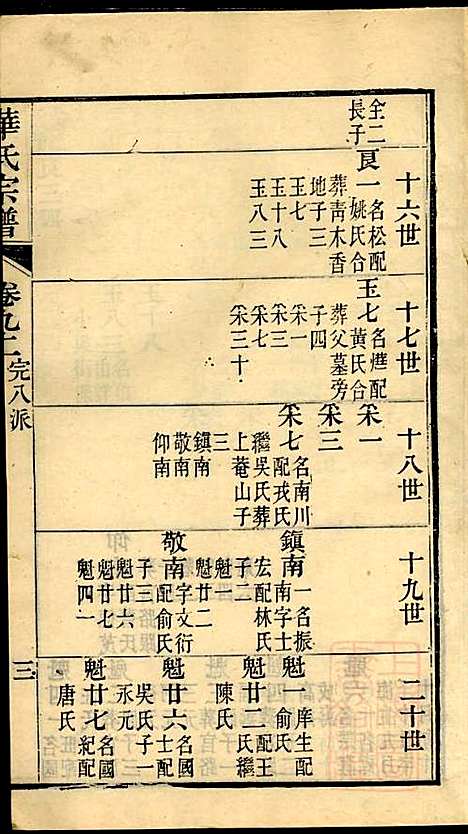 全二
長子
十六世
良一名松配
姚氏合
葬靑木香
地子三
玉七
玉十八
玉八三
十七世
玉七名𤒹配
黃氏合
葬父墓旁
子四
釆一
釆三
釆七
釆三十
十八世
釆一
釆三
釆七名南川
配戎氏
繼吳氏葬
上菴山子
三
鎭南
敬南
仰南
十九世
鎭南一名振
南字士
宏配林氏
子二
魁一
魁廿二
敬南字文衍
配俞氏
子三
魁廿六
魁廿七
魁四一
二十世
魁一庠生配
俞氏
魁廿二配王
氏繼
陳氏
魁廿六名國
士配
吳氏子一
永元
魁廿七名國
紀配
唐氏
華氏宗譜
卷九二
完八派
三